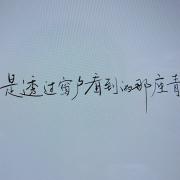 是透过窗户看到的那座青